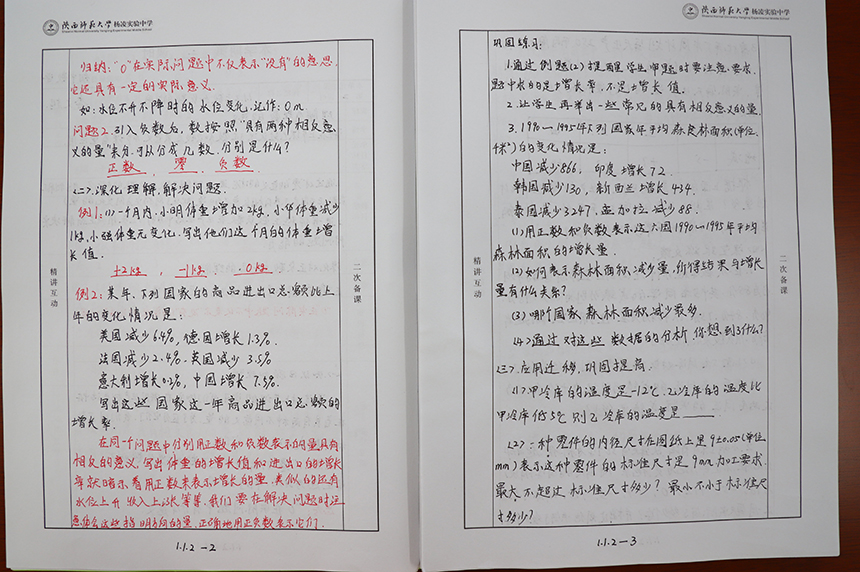 陕西师范大学杨凌实验中学
归纳:"0"在实际问题中不仅表示"没有"的意思,
它还具有一定的实际意义.
如:水位不升不降时的水位变化,记作:0m
问题2.引入负数后,数按照"具有两种相反意
义的量"来分,可以分成几数,分别是什么?
正数、零、负数.
<二>.深化理解,解决问题.
例1:(1)一个月内,小明体重增加2kg,小华体重减少
1kg,小强体重无变化,写出他们这个月的体重增
长值.
+2kg,-1kg,0kg
例2:某年,下列国家的商品进出口总额比上
年的变化情况是:
美国减少6.4%,德国增长1.3%.
法国减少2.4%,英国减少3.5%
意大利增长0.2%,中国增长7.5%.
写出这些国家这一年商品进出口总额的
增长率.
在同一个问题中分别用正数和负数表示的量具有
相反的意义,写出体重的增长值和进出口的增长
率就暗示着用正数来表示增长的量.类似的还有
水位上升、收入上涨等等,我们要在解决问题时注
意体会这些指明方向的量,正确地用正负数表示它们.
精讲互动
二次备课
1.1.2-2
陕西师范大学杨凌实验中学
巩固练习:
1.通过例题(2)提醒学生审题时要注意要求,
题中求的是增长率,不是增长值.
2.让学生再举出一些常见的具有相反意义的量.
3.1990~1995年下列国家年平均森林面积(单位:
千米²)的变化情况是:
中国减少866,印度增长72.
韩国减少130,新西兰增长434.
泰国减少3247,孟加拉减少88.
(1)用正数和负数表示这六国1990~1995年平均
森林面积的增长量.
(2)如何表示森林面积减少量,所得结果与增长
量有什么关系?
(3)哪个国家森林面积减少最多.
(4)通过对这些数据的分析,你想到了什么?
<三>.应用迁移,巩固提高.
(1)甲冷库的温度是-12℃.乙冷库的温度比
甲冷库低5℃则乙冷库的温度是____.
<2>:一种零件的内径尺寸在图纸上是9±0.05(单位
mm)表示这种零件的标准尺寸是9mm,加工要求
最大不超过标准尺寸多少?最小不小于标准尺
寸多少?
精讲互动
二次备课
1.1.2-3